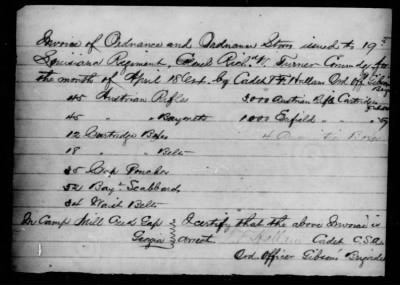 Invoice of Ordnance and Ordnance Stores issued to 19th
Louisiana Regiment, Colonel Rich. W. Turner Commdg for
the month of April 1864 by Cadet Ord Off Gibson
Brig
45 Austrian Rifles 3000 Austrian Rifle Cartridges
45 " Bayonets 1000 Enfield " "
12 Cartridge Boxes 4
18 " Belts
35 Cap Pouches
52 Bayt Scabbards
34 Waist Belts
In Camp Mill Creek Gap I certify that the above Invoice is
Georgia correct.
Cadet C.S.A.
Ord Officer Gibson's Brigade